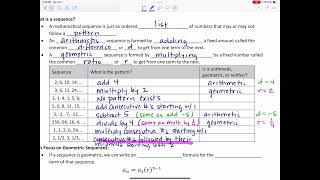 What is a sequence?
A mathematical sequence is just an ordered list of numbers that may or may not
follow a pattern.
An arithmetic sequence is formed by adding a fixed amount called the
common difference or d to get from one term to the next.
A geometric sequence is formed by multiplying by a fixed number called
the common ratio or r to get from one term to the next.
Sequence What is the pattern? Is it arithmetic, geometric, or neither?
2, 6, 10, 14, add 4 arithmetic d=4
3, 6, multiply by 2 geometric r=2
1, 1, 4, 1, 5, 9, No pattern exists
add consecutive #'s starting w/ 1
3, -2, -7, -12, subtract 5 (same as add -5) arithmetic d=-5
256, 64, 16, 4, divide by 4 (same as mult by 1/4) geometric r=1/4
multiply consecutive #'s starting w/ 1
consecutive #'s followed by their
starting with
Focus on Geometric Sequences:
If a sequence is geometric, we can write an formula for the
term of that sequence.
aₙ = a₁(r)ⁿ⁻¹